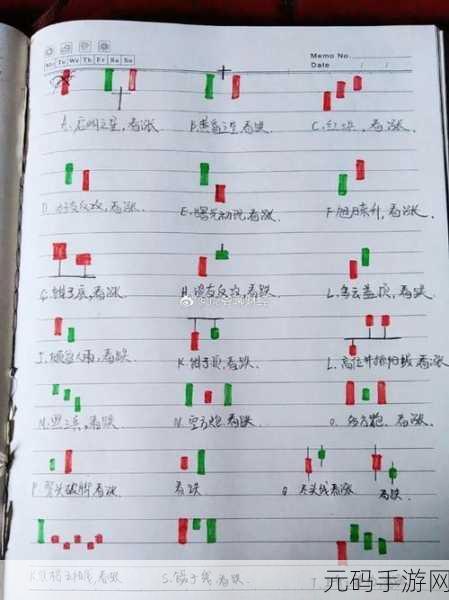 Memo No.
Mo Tu We Th Fr Sa Su
Date / /
A. 启明之星,看涨. B. 黄昏之星 看跌. C. 红三兵, 看涨.
D. 好友反攻,看涨. E. 曙光初现,看涨. F. 旭日东升,看涨.
G. 钳子底,看涨. H. 淡友反攻,看跌. L. 乌云盖顶,看跌.
J. 倾盆大雨,看跌 K. 钳子顶,看跌. L. 高位并排阳线,看涨
M. 黑三兵,看跌. N. 空方炮,看跌. O. 多方炮, 看涨.
P. 穿头破脚,看涨. 看跌 Q. 尽头线 看涨 看跌.
看跌 S. 镊子线,看跌. T.
元码手游网